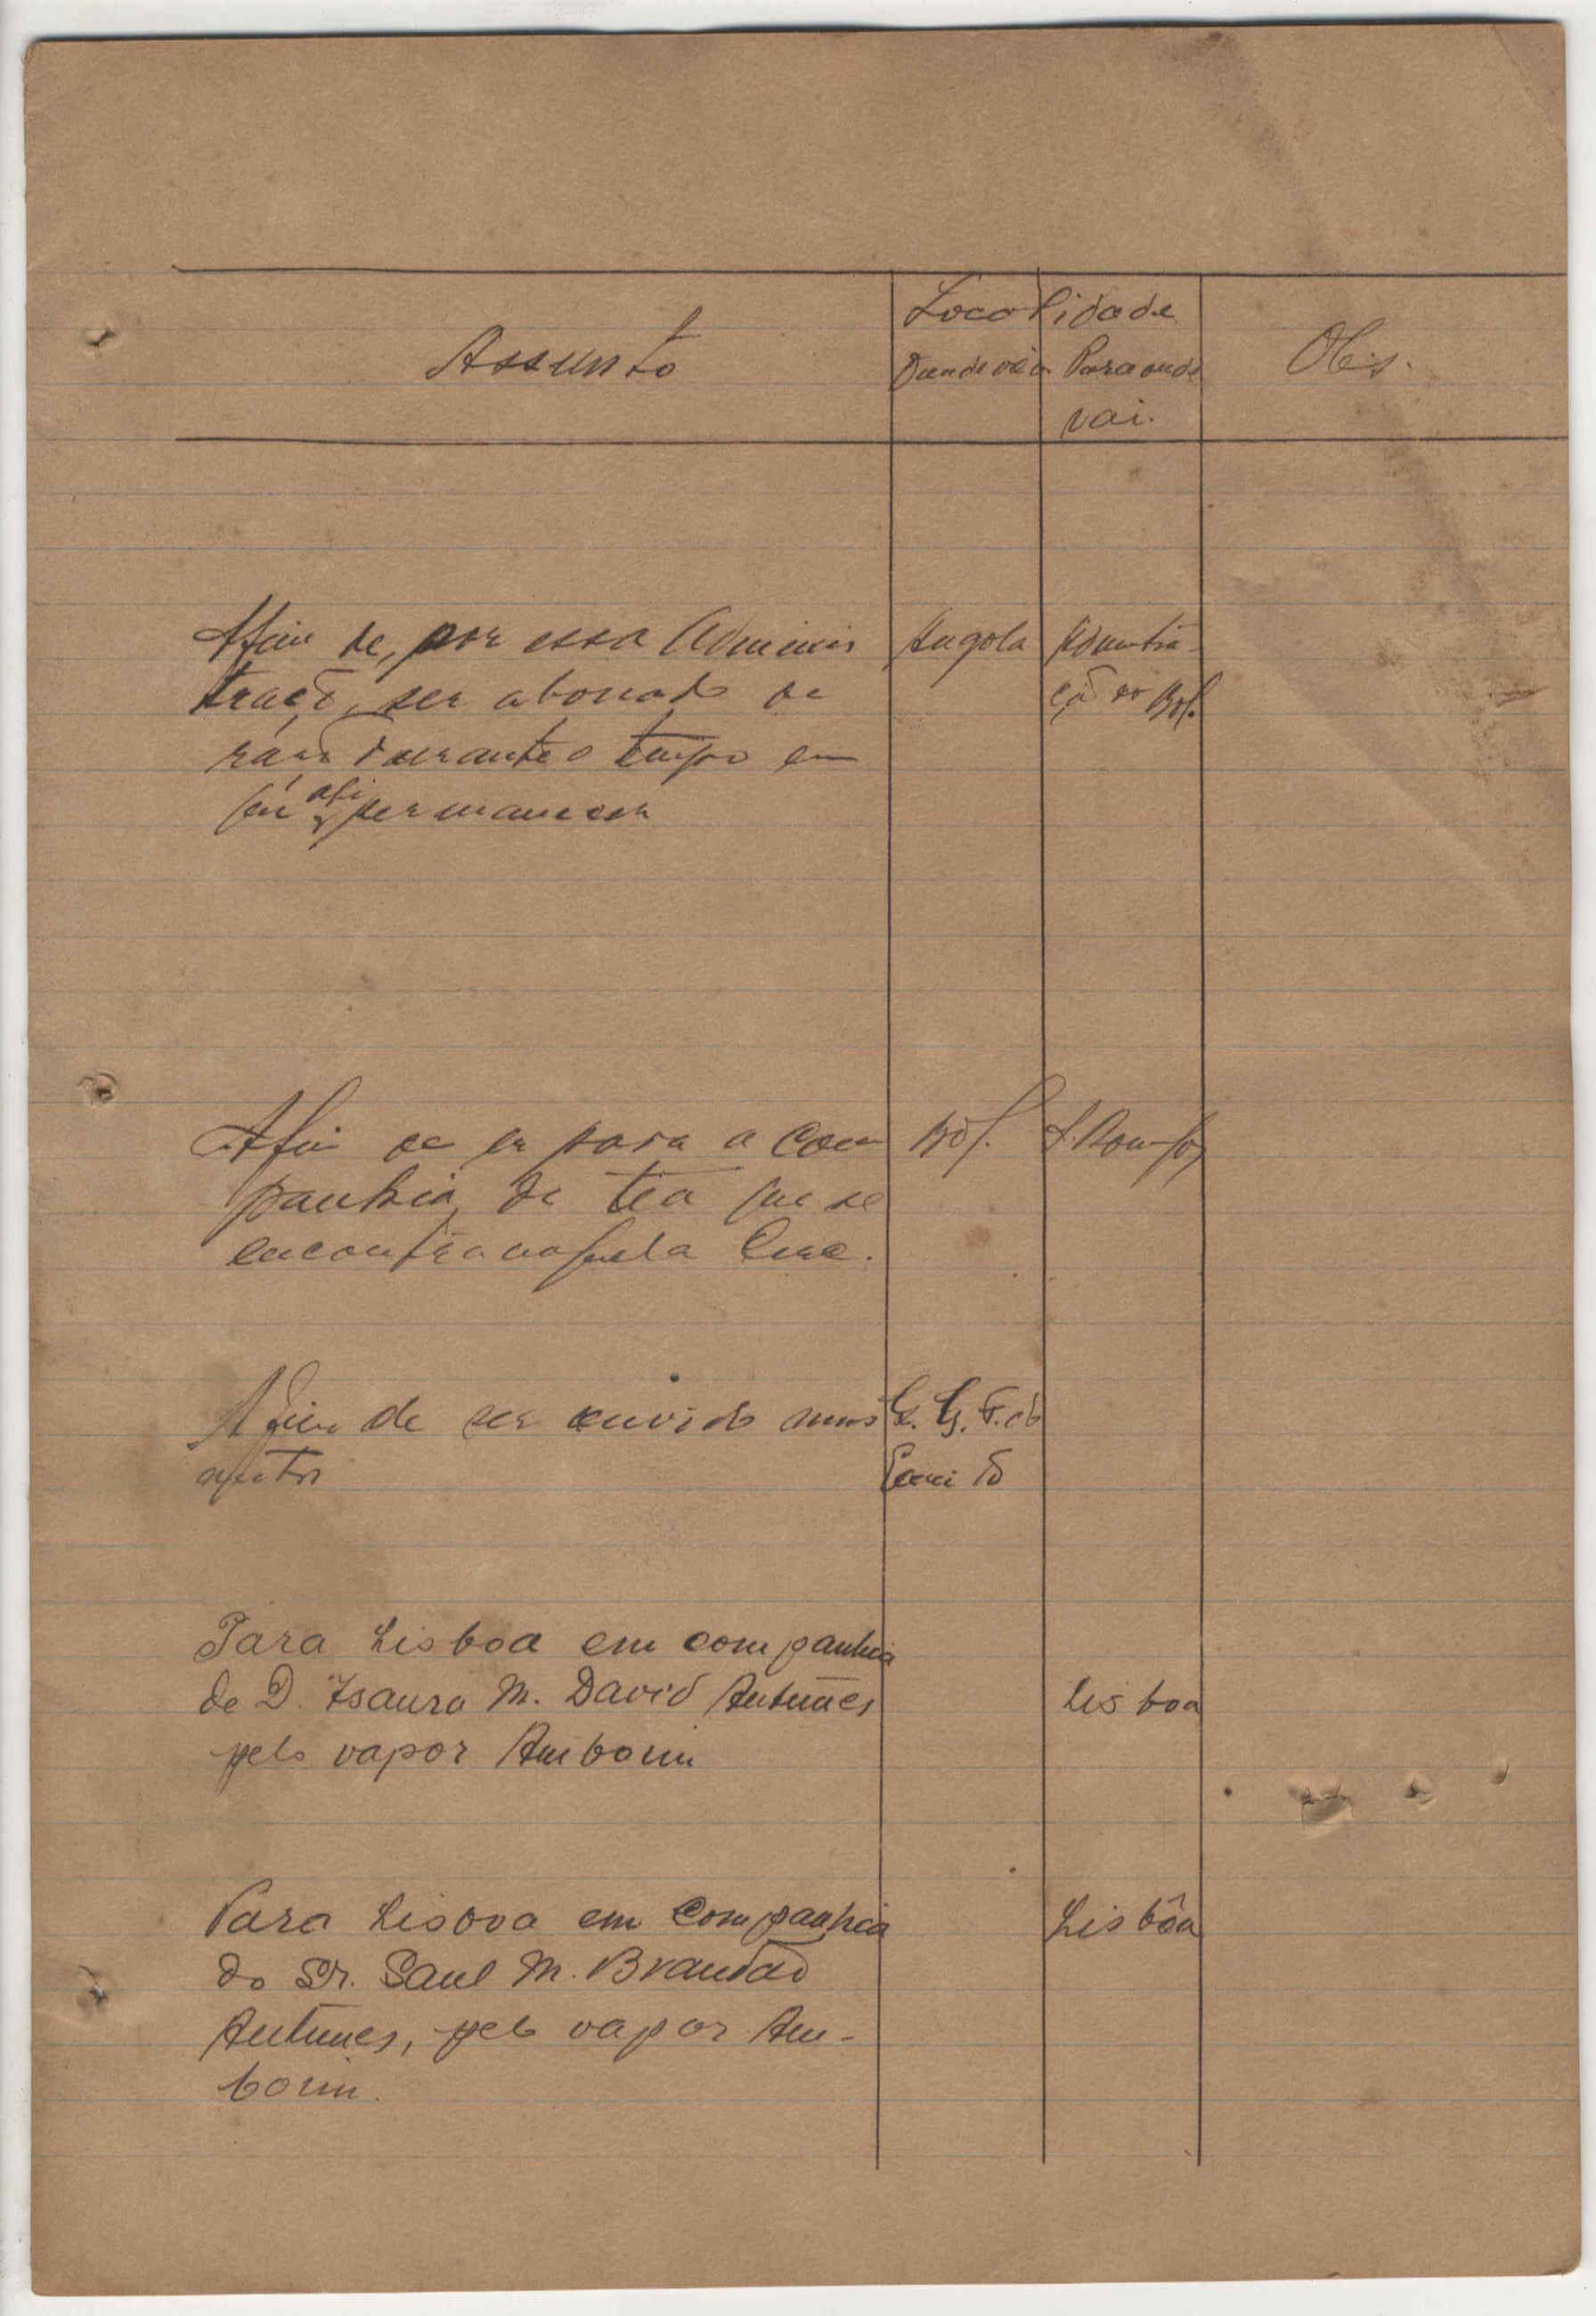 Assunto
Localidade
Donde veio
Para onde
vai.
Obs.
Afim de, por essa Adminis
tração, ser abonado de
ração durante o tempo em
que ali permanecer
Angola
ção do Bof.
Afim de ir para a com
panhia de tia que se
encontra naquela
Bof.
Afim de ser ouvido nuns
autos
Para Lisboa em companhia
de D. Isaura M. David Antunes
pelo vapor Amboim
Lisboa
Para Lisboa em companhia
do Sr. Saul M. Brandão
Antunes, pelo vapor Am-
boim.
Lisbôa